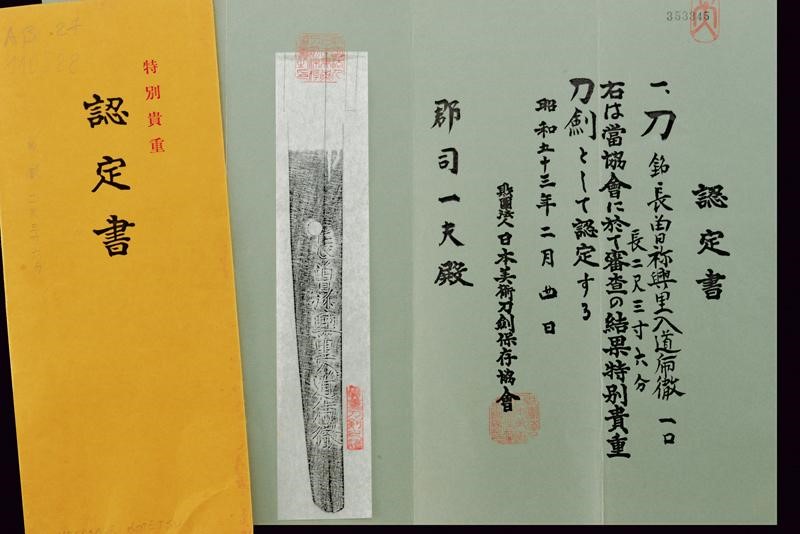 353345
認定書
一、刀 銘 長曽祢興里入道乕徹 一口
長二尺三寸六分
右は當協會に於て審査の結果特別貴重
刀劍として認定する
昭和五十三年二月廿日
財團法人日本美術刀劍保存協會
郡司一夫殿
特別貴重
認定書